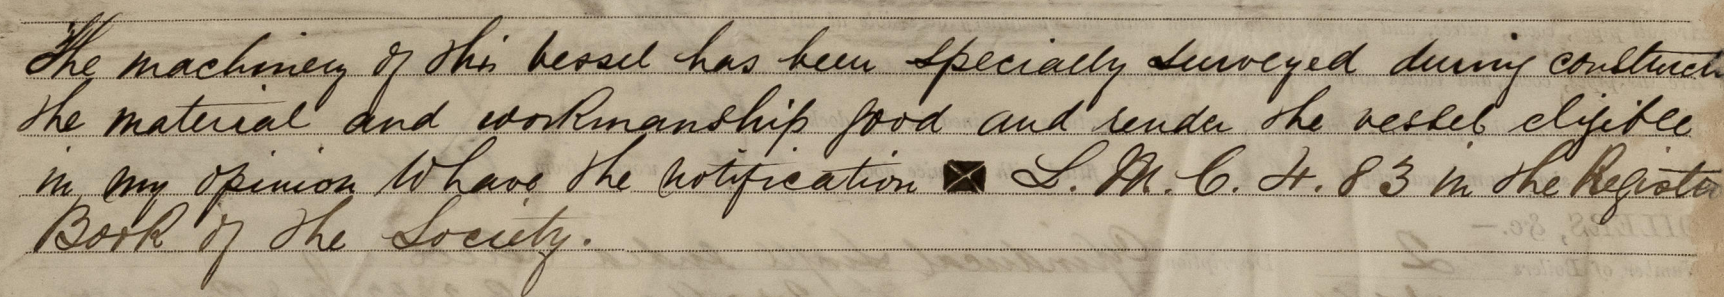 The machinery of this vessel has been specially surveyed during construct
the material and workmanship good and render the vessel eligible
in my opinion to have the notification ✠ L. M. C. 4. 83 in the Register
Book of the Society.